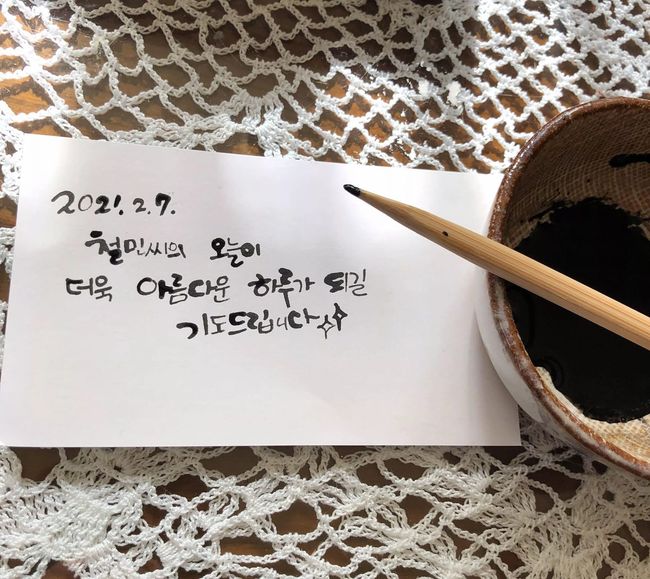 2021. 2. 7.
철민씨의 오늘이
더욱 아름다운 하루가 되길
기도드립니다